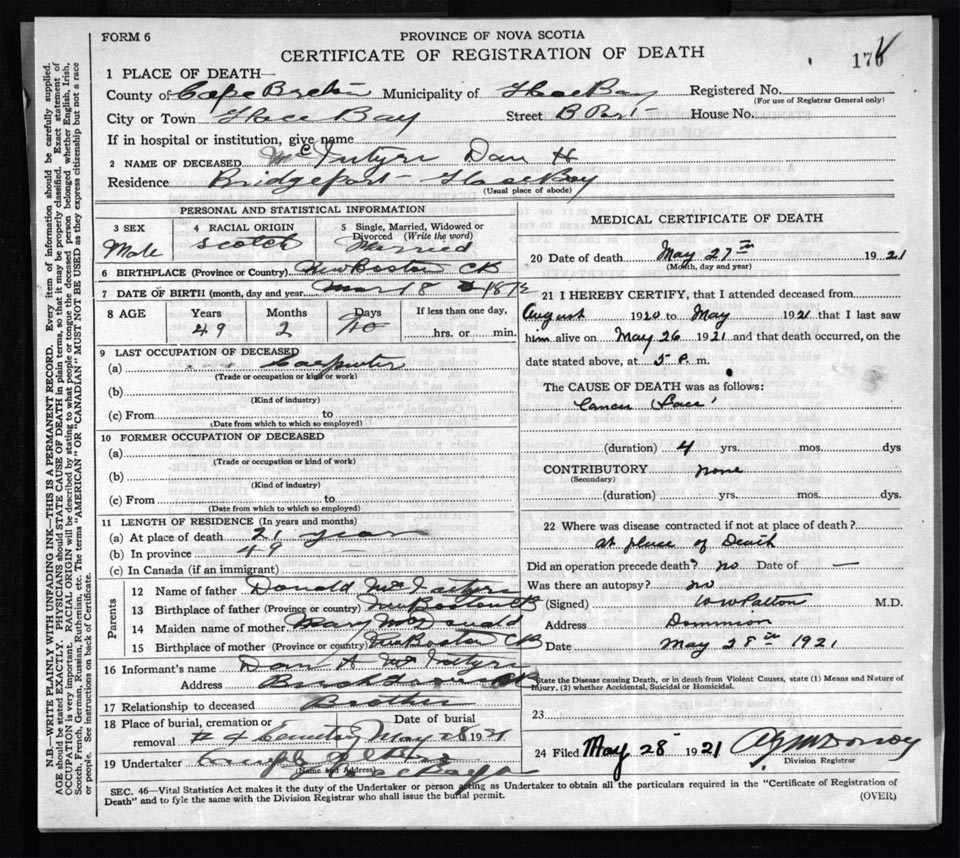 FORM 6
PROVINCE OF NOVA SCOTIA
CERTIFICATE OF REGISTRATION OF DEATH
17
1 PLACE OF DEATH—
County of Cape Breton Municipality of Glace Bay Registered No.
(For use of Registrar General only)
City or Town Glace Bay Street B Port House No.
If in hospital or institution, give name
2 NAME OF DECEASED McIntyre Dan H
Residence Bridgeport Glace Bay
(Usual place of abode)
PERSONAL AND STATISTICAL INFORMATION
3 SEX
Male
4 RACIAL ORIGIN
Scotch
5 Single, Married, Widowed or
Divorced (Write the word)
Married
6 BIRTHPLACE (Province or Country) New Boston CB
7 DATE OF BIRTH (month, day and year Mar 18 1872
8 AGE Years Months Days If less than one day,
49 2 10 hrs. or min.
9 LAST OCCUPATION OF DECEASED
(a) Carpenter
(Trade or occupation or kind of work)
(b)
(Kind of industry)
(c) From to
(Date from which to which so employed)
10 FORMER OCCUPATION OF DECEASED
(a)
(Trade or occupation or kind of work)
(b)
(Kind of industry)
(c) From to
(Date from which to which so employed)
11 LENGTH OF RESIDENCE (In years and months)
(a) At place of death 21 years
(b) In province 49 —
(c) In Canada (if an immigrant)
Parents
12 Name of father Donald McIntyre
13 Birthplace of father (Province or country) New Boston CB
14 Maiden name of mother Mary McDonald
15 Birthplace of mother (Province or country) New Boston CB
16 Informant's name Dan A McIntyre
Address
17 Relationship to deceased Brother
18 Place of burial, cremation or removal # 4 Cemetery
Date of burial
May 28 1921
19 Undertaker
(Name and Address)
Glace Bay
MEDICAL CERTIFICATE OF DEATH
20 Date of death May 27th 1921
(Month, day and year)
21 I HEREBY CERTIFY, that I attended deceased from
August 1920 to May 1921 that I last saw
him alive on May 26 1921 and that death occurred, on the
date stated above, at 5 P. m.
The CAUSE OF DEATH was as follows:
Cancer Face
(duration) 4 yrs. mos. dys
CONTRIBUTORY none
(Secondary)
(duration) yrs. mos. dys.
22 Where was disease contracted if not at place of death?
at place of Death
Did an operation precede death? no Date of —
Was there an autopsy? no
(Signed) W W Patton M.D.
Address Dominion
Date May 28th 1921
State the Disease causing Death, or in death from Violent Causes, state (1) Means and Nature of
Injury, (2) whether Accidental, Suicidal or Homicidal.
23
24 Filed May 28 1921
Division Registrar
SEC. 46—Vital Statistics Act makes it the duty of the Undertaker or person acting as Undertaker to obtain all the particulars required in the "Certificate of Registration of
Death" and to fyle the same with the Division Registrar who shall issue the burial permit.
(OVER)
N.B.—WRITE PLAINLY WITH UNFADING INK—THIS IS A PERMANENT RECORD. Every item of information should be carefully supplied.
AGE should be stated EXACTLY. PHYSICIANS should STATE CAUSE OF DEATH in plain terms, so that it may be properly classified. Exact statement of
OCCUPATION is very important. RACIAL ORIGIN will be described by stating to what people or tongue the deceased person belonged whether English, Irish,
Scotch, French, German, Russian, Ruthenian, etc. The terms "AMERICAN" OR "CANADIAN" MUST NOT BE USED as they express citizenship but not a race
or people. See instructions on back of Certificate.